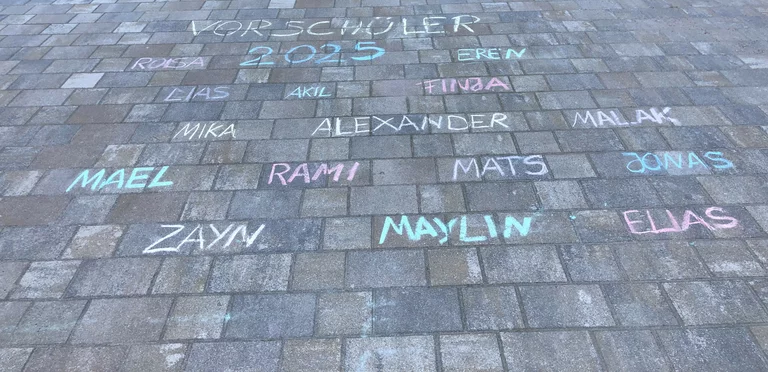 VORSCHÜLER
2025
ROZA EREN
LIAS AKIL FINJA
MIKA ALEXANDER MALAK
MAEL RAMI MATS JONAS
ZAYN MAYLIN ELIAS